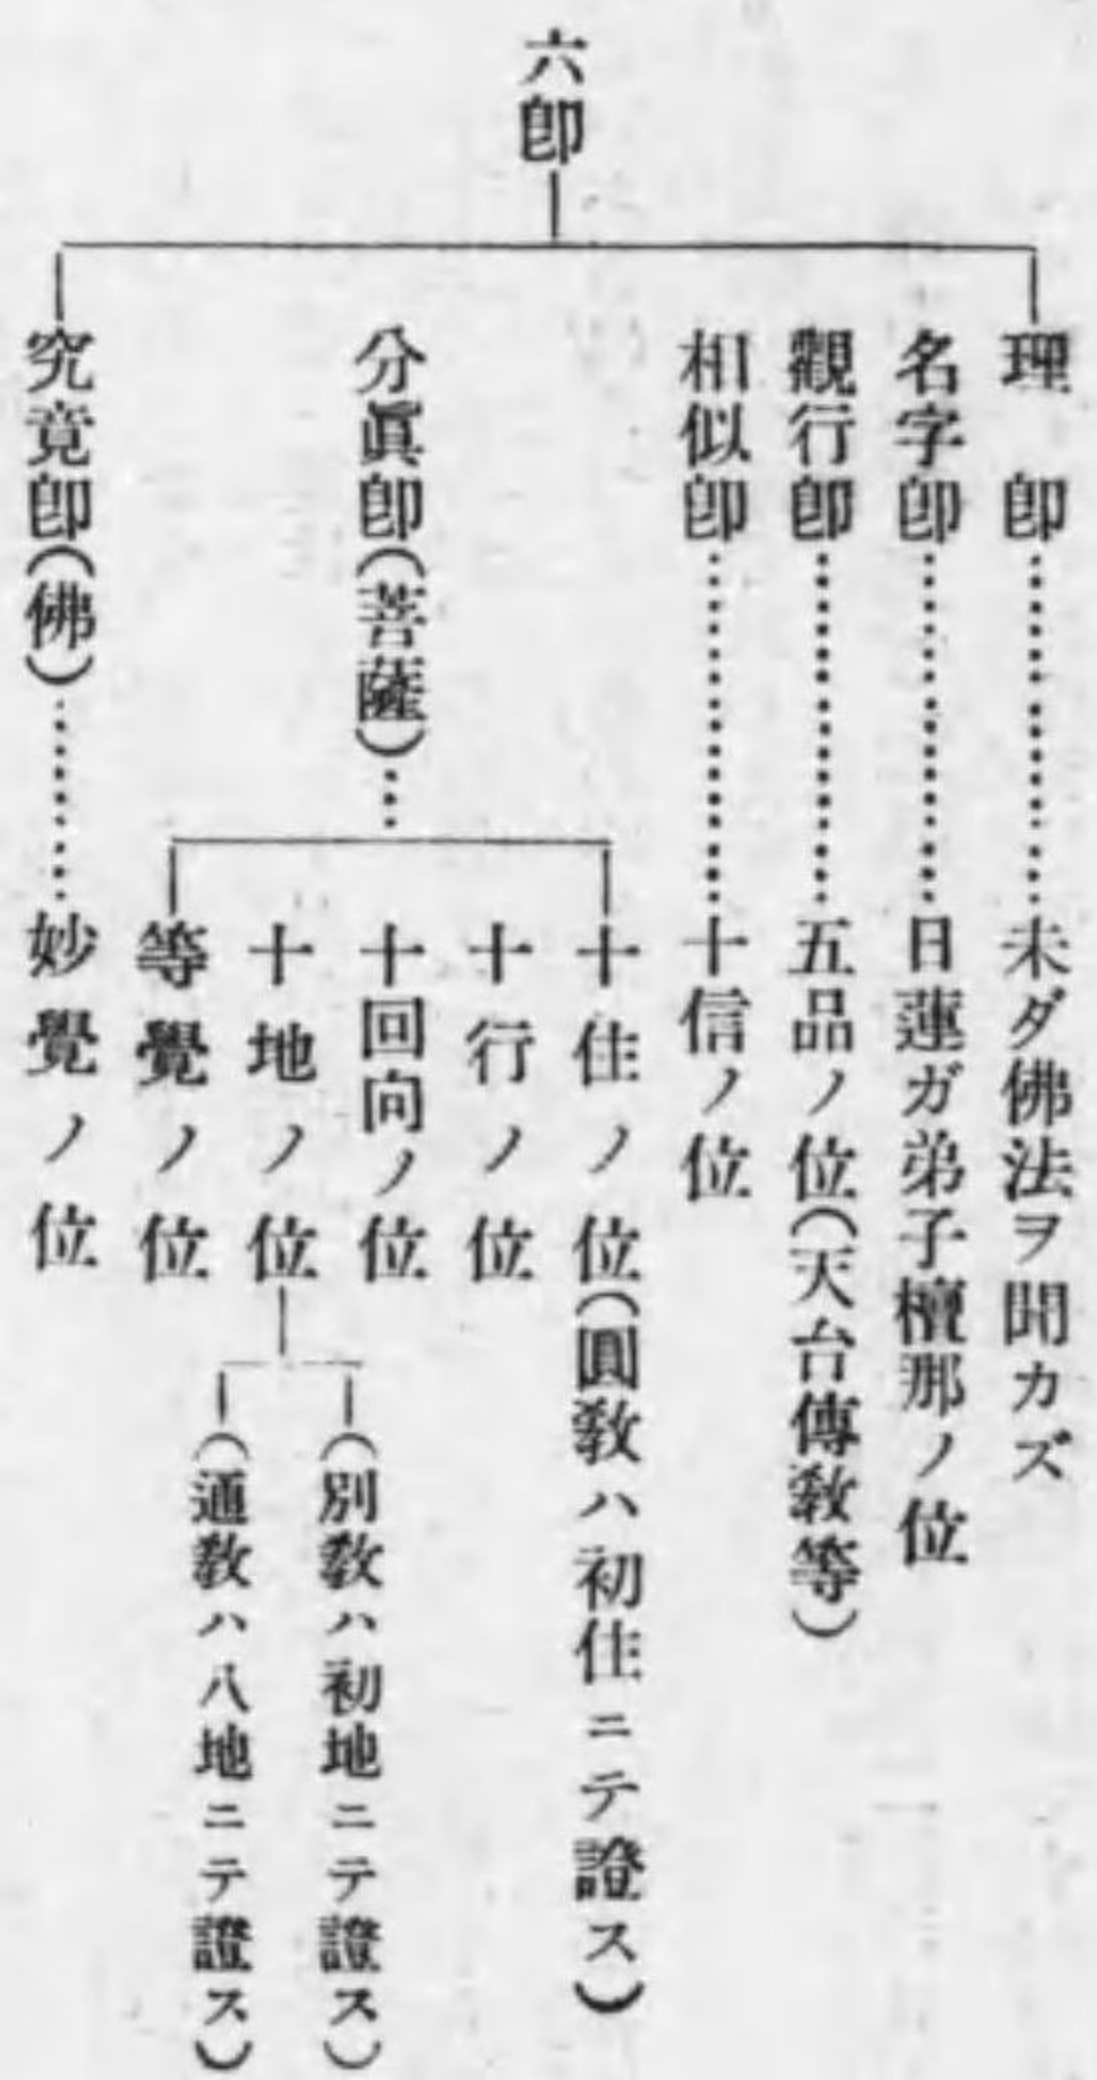 六卽
理卽…………未ダ佛法ヲ聞カズ
名字卽…………日蓮ガ弟子檀那ノ位
觀行卽…………五品ノ位(天台傳敎等)
相似卽…………十信ノ位
分眞卽(菩薩)…
十住ノ位(圓敎ハ初住ニテ證ス)
十行ノ位
十回向ノ位
十地ノ位
(別敎ハ初地ニテ證ス)
(通敎ハ八地ニテ證ス)
等覺ノ位
究竟卽(佛)…………妙覺ノ位